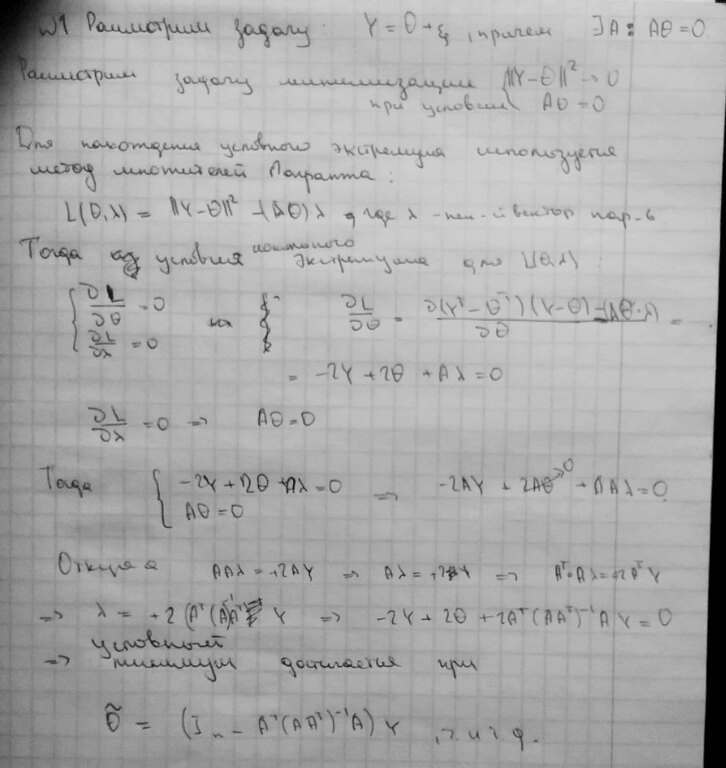 N1 Рассмотрим задачу: Y = θ + ξ, причем ∃A : Aθ = 0.
Рассмотрим задачу минимизации { ||Y - θ||² → 0
при условии Aθ = 0
Для нахождения условного экстремума используется
метод множителей Лагранжа:
L(θ, λ) = ||Y - θ||² + (Aθ)λ, где λ - вектор пар-в
Тогда условия экстремума для L(θ, λ):
{ ∂L/∂θ = 0 ∂L/∂θ = ∂(Y^T - θ^T)(Y - θ) + (Aθ·λ) / ∂θ =
∂L/∂λ = 0
= -2Y + 2θ + Aλ = 0
∂L/∂λ = 0 => Aθ = 0
Тогда { -2Y + 2θ + Aλ = 0 => -2AY + 2Aθ → 0 + AAλ = 0
Aθ = 0
Откуда AAλ = +2AY => Aλ = +2Y => A^T·Aλ = +2A^T Y
=> λ = +2 Y => -2Y + 2θ + 2A^T(AA^T)^-1 A Y = 0
=> условный минимум достигается при
θ̃ = (I_n - A^T(AA^T)^-1 A) Y, ч.и т.д.